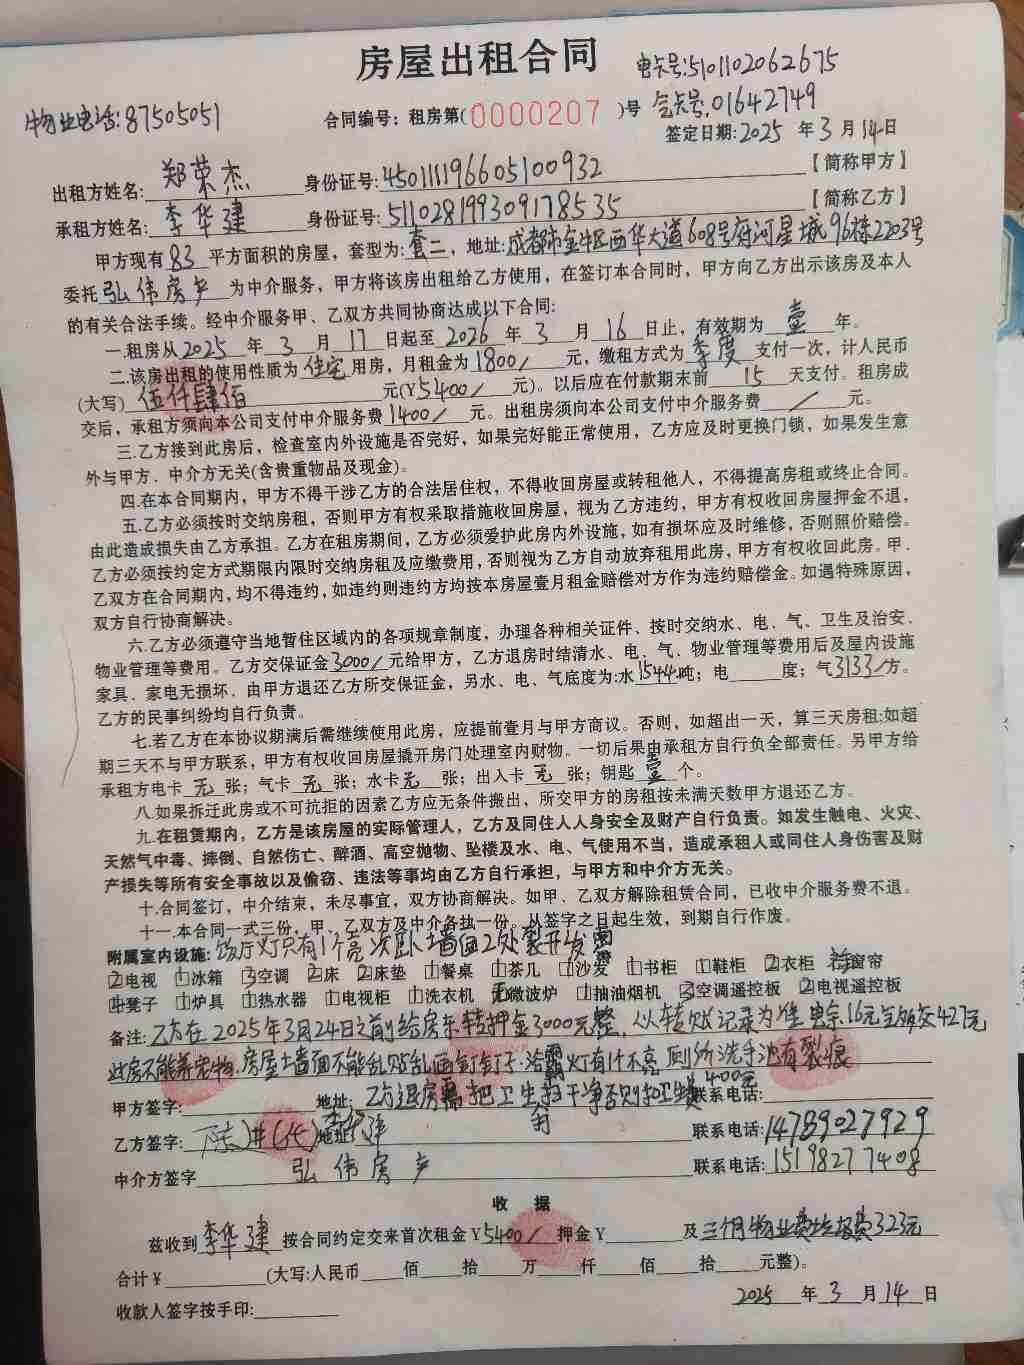 房屋出租合同
电卡号:5101102062675
物业电话:87505051
合同编号：租房第(0000207)号 气卡号.01642749
签定日期:2025年3月14日
出租方姓名:郑荣杰 身份证号:450111196605100932【简称甲方】
承租方姓名:李华建 身份证号:511028199309178535【简称乙方】
甲方现有83平方面积的房屋，套型为:套二，地址:成都市金牛区西华大道608号府河星城96栋2203号
委托弘伟房产为中介服务，甲方将该房出租给乙方使用，在签订本合同时，甲方向乙方出示该房及本人
的有关合法手续。经中介服务甲、乙双方共同协商达成以下合同:
一.租房从2025年3月17日起至2026年3月16日止，有效期为壹年。
二.该房出租的使用性质为住宅用房，月租金为1800/元，缴租方式为季度支付一次，计人民币
(大写)伍仟肆佰元(¥5400/元)。以后应在付款期末前15天支付。租房成
交后，承租方须向本公司支付中介服务费1400/元。出租房须向本公司支付中介服务费/元。
三.乙方接到此房后，检查室内外设施是否完好，如果完好能正常使用，乙方应及时更换门锁，如果发生意
外与甲方．中介方无关(含贵重物品及现金)。
四.在本合同期内，甲方不得干涉乙方的合法居住权，不得收回房屋或转租他人，不得提高房租或终止合同。
五.乙方必须按时交纳房租，否则甲方有权采取措施收回房屋，视为乙方违约，甲方有权收回房屋押金不退，
由此造成损失由乙方承担。乙方在租房期间，乙方必须爱护此房内外设施，如有损坏应及时维修，否则照价赔偿。
乙方必须按约定方式期限内限时交纳房租及应缴费用，否则视为乙方自动放弃租用此房，甲方有权收回此房。甲．
乙双方在合同期内，均不得违约，如违约则违约方均按本房屋壹月租金赔偿对方作为违约赔偿金。如遇特殊原因，
双方自行协商解决。
六.乙方必须遵守当地暂住区域内的各项规章制度，办理各种相关证件、按时交纳水、电、气、卫生及治安、
物业管理等费用。乙方交保证金3000/元给甲方，乙方退房时结清水、电、气、物业管理等费用后及屋内设施
家具．家电无损坏．由甲方退还乙方所交保证金，另水、电、气底度为:水1544吨；电 度；气3133/方。
乙方的民事纠纷均自行负责。
七.若乙方在本协议期满后需继续使用此房，应提前壹月与甲方商议。否则，如超出一天，算三天房租;如超
期三天不与甲方联系，甲方有权收回房屋撬开房门处理室内财物。一切后果由承租方自行负全部责任。另甲方给
承租方电卡无张；气卡无张；水卡无张；出入卡无张；钥匙壹个。
八.如果拆迁此房或不可抗拒的因素乙方应无条件搬出，所交甲方的房租按未满天数甲方退还乙方．
九.在租赁期内，乙方是该房屋的实际管理人，乙方及同住人人身安全及财产自行负责。如发生触电、火灾、
天然气中毒、摔倒、自然伤亡、醉酒、高空抛物、坠楼及水、电、气使用不当，造成承租人或同住人身伤害及财
产损失等所有安全事故以及偷窃、违法等事均由乙方自行承担，与甲方和中介方无关。
十.合同签订，中介结束，未尽事宜，双方协商解决。如甲、乙双方解除租赁合同，已收中介服务费不退。
十一.本合同一式三份，甲、乙双方及中介各执一份。从签字之日起生效，到期自行作废。
附属室内设施:饭厅灯只有1个亮 次卧墙面2处裂开发
2电视 1冰箱 3空调 2床 2床垫 1餐桌 1茶几 1沙发 1书柜 1鞋柜 2衣柜 窗帘
4凳子 1炉具 1热水器 1电视柜 1洗衣机 无微波炉 1抽油烟机 3空调遥控板 2电视遥控板
备注:乙方在2025年3月24日之前给房东转押金3000元整，以转账记录为准 电余16元 气427元
此房不能养宠物.房屋墙面不能乱贴乱画钉钉子.浴霸灯有1个不亮 厕所洗手池有裂痕
甲方签字: 地址: 乙方退房需把卫生打扫干净否则扣卫生费400元 联系电话:
乙方签字: 李华建 地址: 联系电话:14789027929
中介方签字 弘伟房产 联系电话:15198277408
收 据
兹收到李华建按合同约定交来首次租金¥5400/押金¥ 及三个月物业费垃圾费323元
合计¥ (大写:人民币 佰 拾 万 仟 佰 拾 元整)。
2025年3月14日
收款人签字按手印: